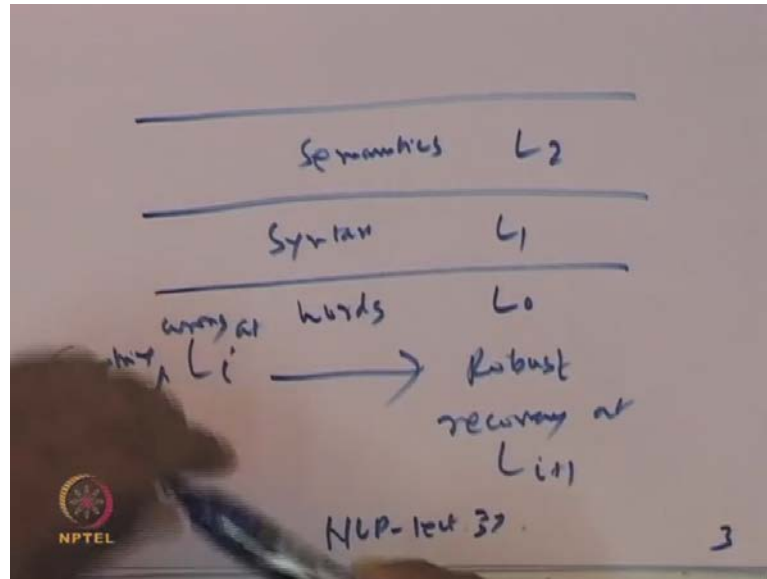 Semantics L2
Syntax L1
words L0
wrong at
Li → Robust
recovery at
Li+1
NLP-lect 37
3
NPTEL